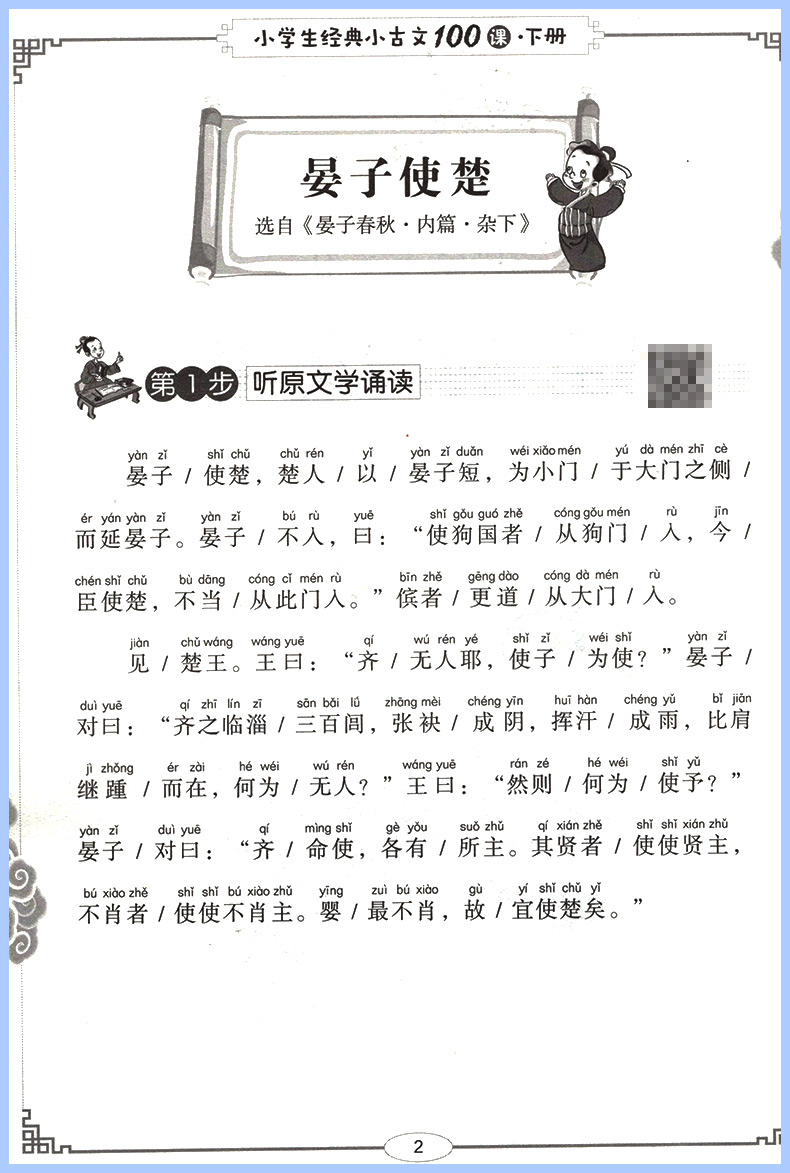 小学生经典小古文100课·下册
晏子使楚
选自《晏子春秋·内篇·杂下》
第1步 听原文学诵读
yàn zǐ shǐ chǔ chǔ rén yǐ yàn zǐ duǎn wéi xiǎo mén yú dà mén zhī cè
晏子 / 使楚，楚人 / 以 / 晏子短，为小门 / 于大门之侧 /
ér yán yàn zǐ yàn zǐ bú rù yuē shǐ gǒu guó zhě cóng gǒu mén rù jīn
而延晏子。晏子 / 不入，曰：“使狗国者 / 从狗门 / 入，今 /
chén shǐ chǔ bù dāng cóng cǐ mén rù bīn zhě gēng dào cóng dà mén rù
臣使楚，不当 / 从此门入。”傧者 / 更道 / 从大门 / 入。
jiàn chǔ wáng wáng yuē qí wú rén yé shǐ zǐ wéi shǐ yàn zǐ
见 / 楚王。王曰：“齐 / 无人耶，使子 / 为使？”晏子 /
duì yuē qí zhī lín zī sān bǎi lǘ zhāng mèi chéng yīn huī hàn chéng yǔ bǐ jiān
对曰：“齐之临淄 / 三百闾，张袂 / 成阴，挥汗 / 成雨，比肩
jì zhǒng ér zài hé wéi wú rén wáng yuē rán zé hé wéi shǐ yǔ
继踵 / 而在，何为 / 无人？”王曰：“然则 / 何为 / 使予？”
yàn zǐ duì yuē qí mìng shǐ gè yǒu suǒ zhǔ qí xián zhě shǐ shǐ xián zhǔ
晏子 / 对曰：“齐 / 命使，各有 / 所主。其贤者 / 使使贤主，
bú xiào zhě shǐ shǐ bú xiào zhǔ yīng zuì bú xiào gù yí shǐ chǔ yǐ
不肖者 / 使使不肖主。婴 / 最不肖，故 / 宜使楚矣。”
2